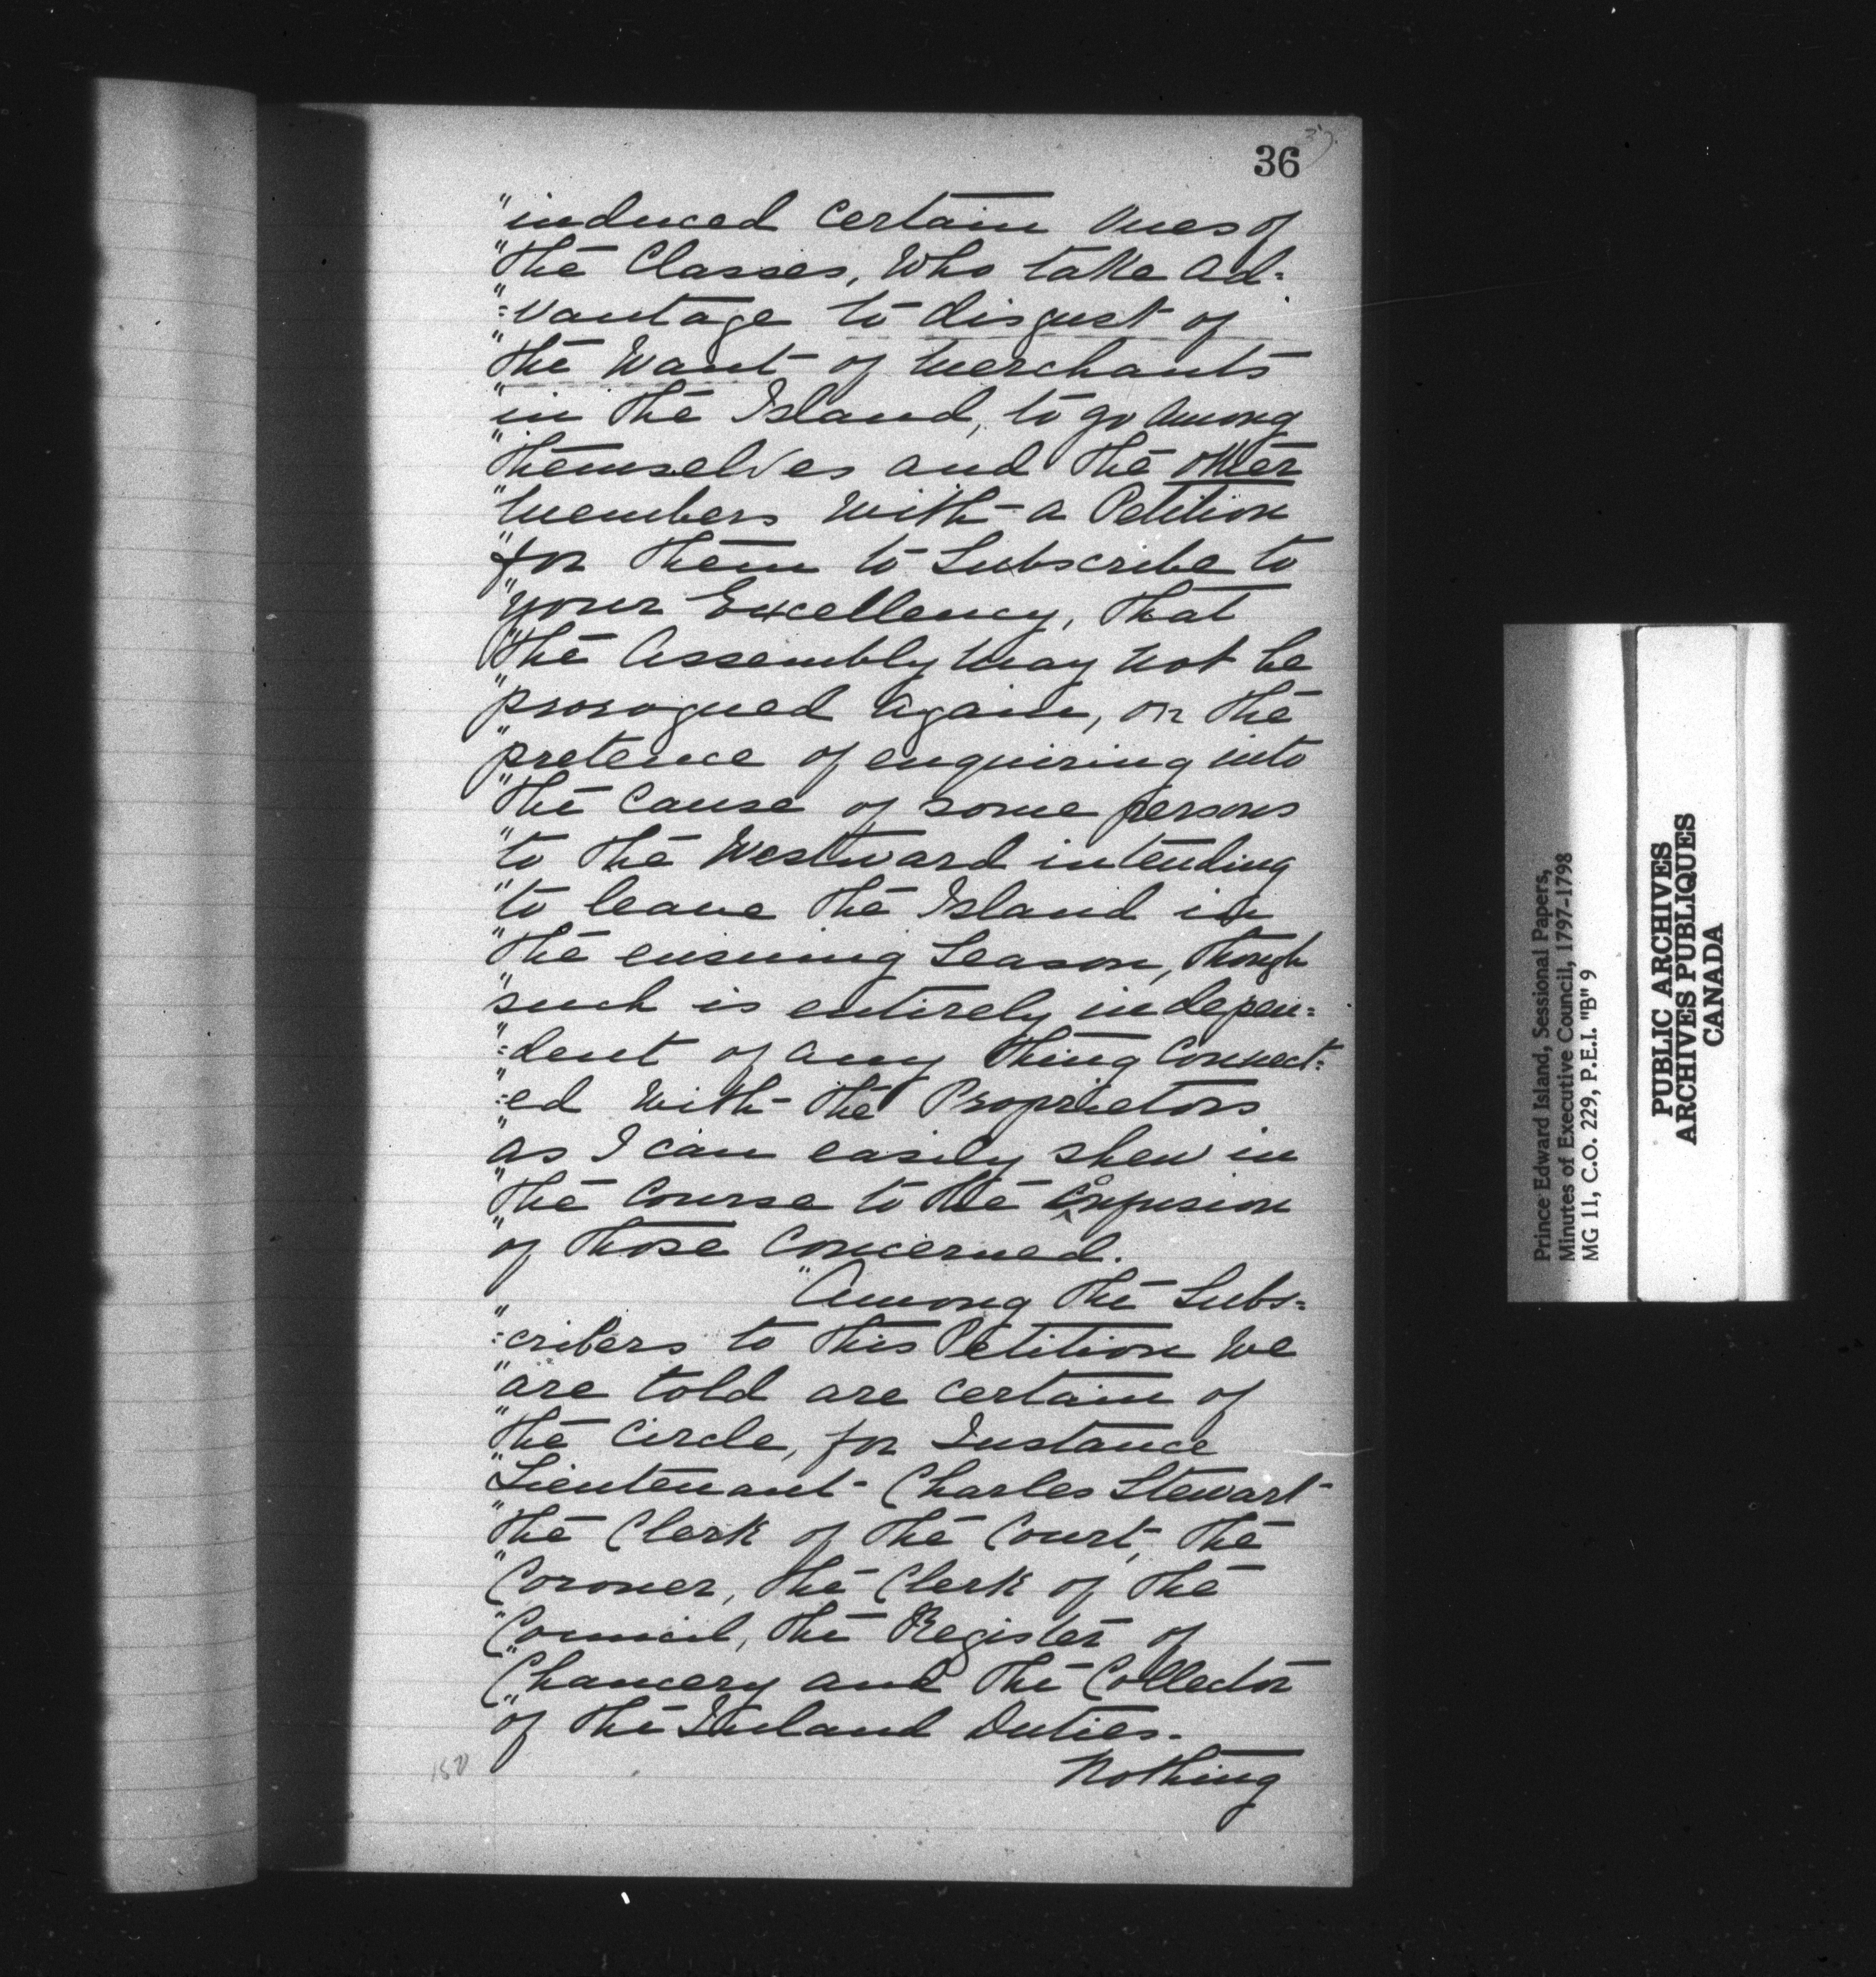 36
37.
"induced certain Ones of
"the Classes, Who take ad=
"=vantage to disgust of
"the Want of Merchants
"in the Island, to go among
"themselves and the other
"Members With a Petition
"for them to Subscribe to
"your Excellency, that
"the Assembly May not be
"prorogued again, on the
"pretence of enquiring into
"the Cause of some persons
"to the Westward intending
"to leave the Island in
"the ensuing Season, though
"such is entirely indepen=
"=dent of any thing Connect=
"=ed With the Proprietors
"as I can easily shew in
"the Course to the Confusion
"of those Concerned.
"Among the Subs=
"=cribers to this Petition We
"are told are certain of
"the Circle, for Instance
"Lieutenant Charles Stewart
"the Clerk of the Court, the
"Coroner, the Clerk of the
"Council, the Register of
"Chancery and the Collector
"of the Inland Duties.
Nothing
150
Prince Edward Island, Sessional Papers,
Minutes of Executive Council, 1797-1798
MG 11, C.O. 229, P.E.I. "B" 9
PUBLIC ARCHIVES
ARCHIVES PUBLIQUES
CANADA